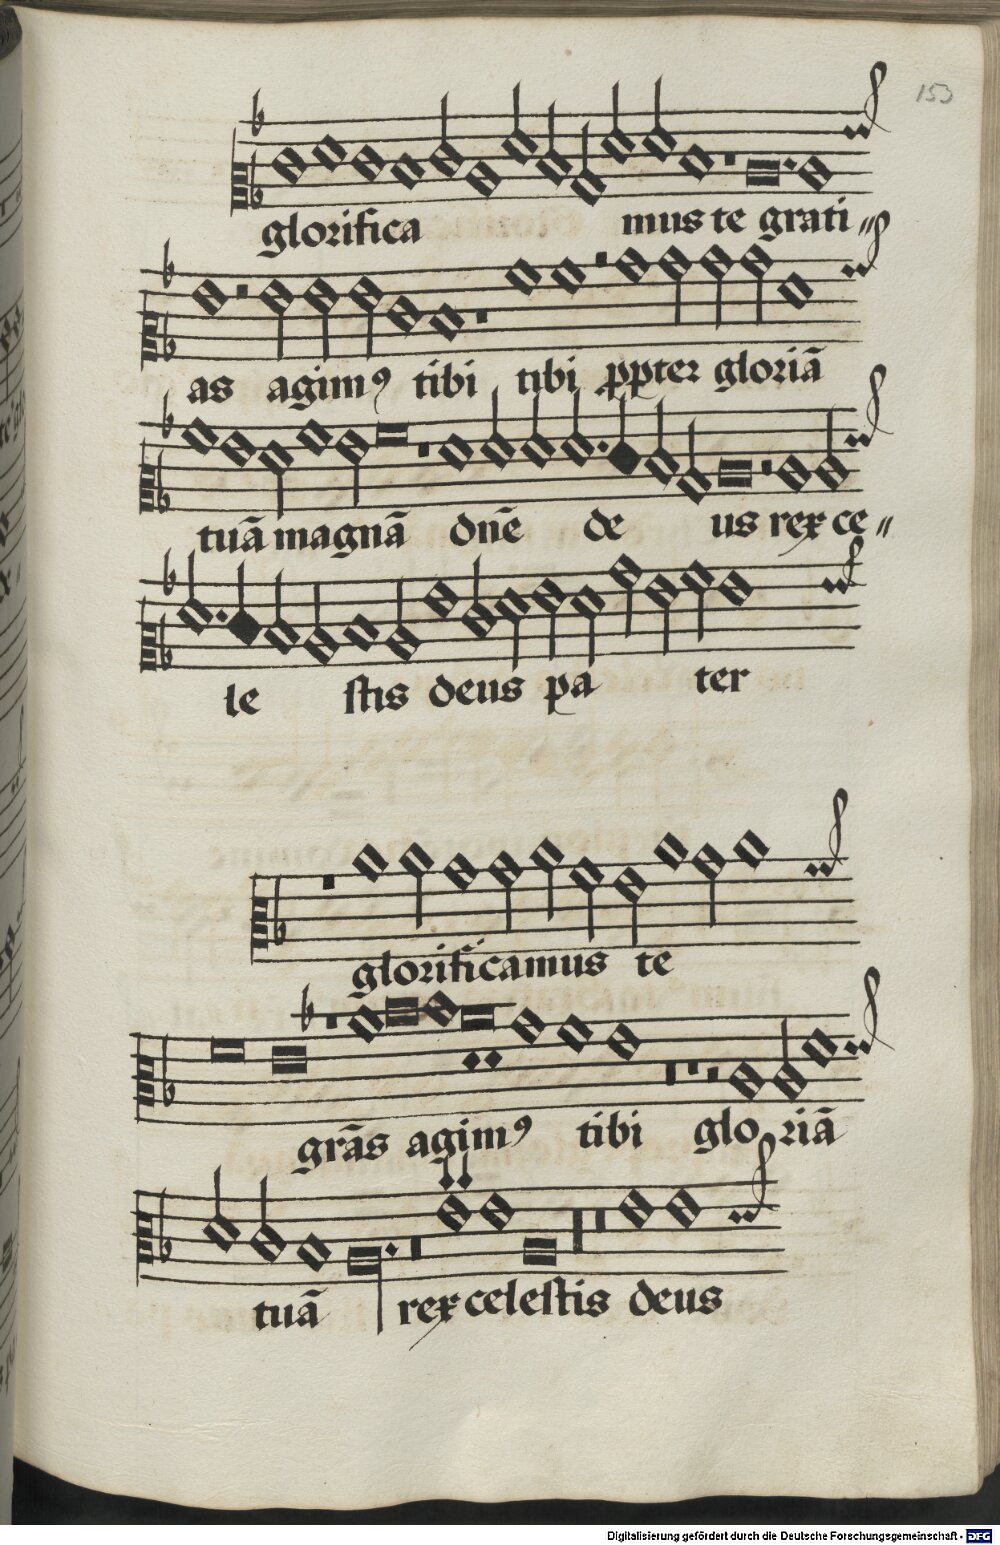 153
glorifica mus te grati〃
as agimꝰ tibi tibi ꝓpter gloriā
tuā magnā dnē de us rex ce〃
le stis deus pa ter
glorificamus te
grās agimꝰ tibi glo riā
tuā rex celestis deus
Digitalisierung gefördert durch die Deutsche Forschungsgemeinschaft - DFG